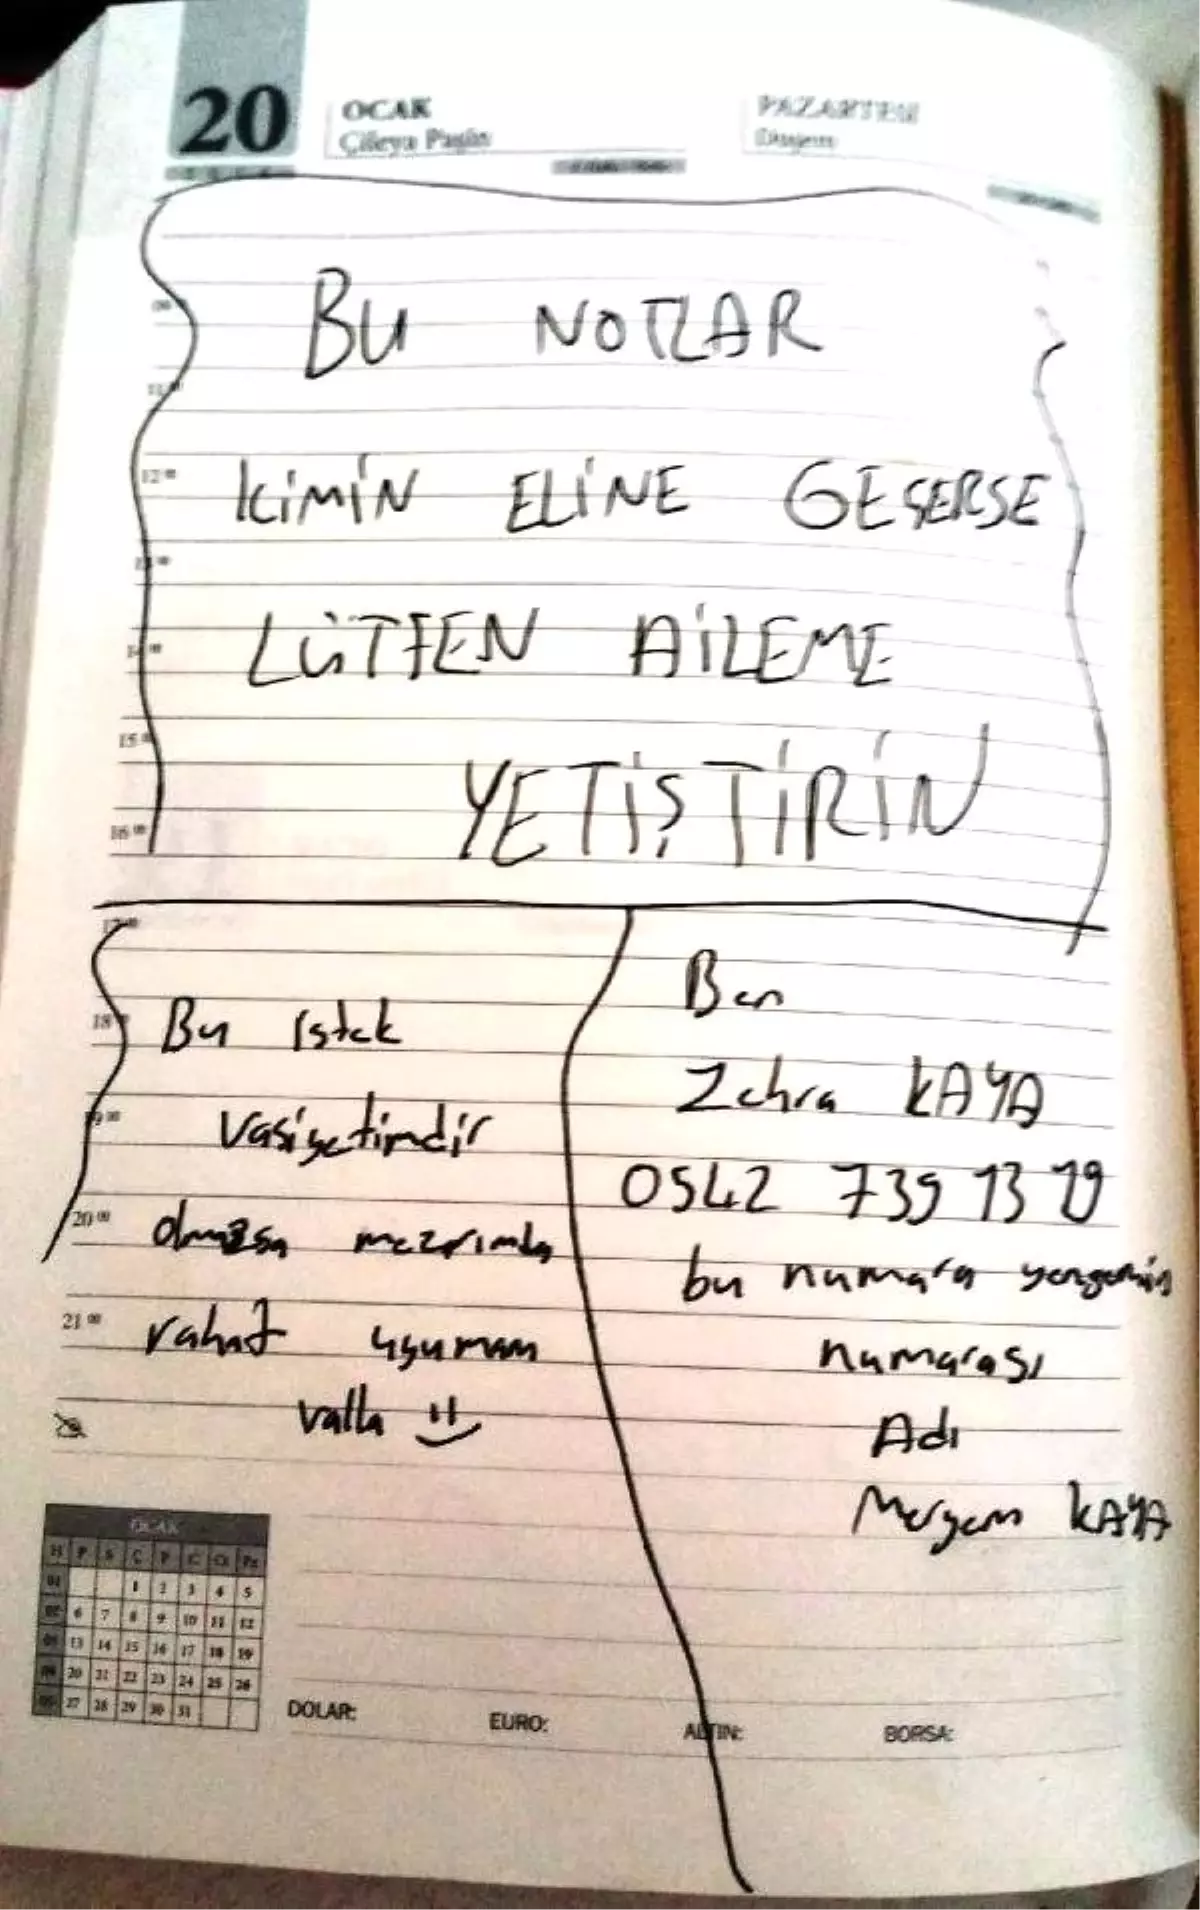 20
OCAK
Çileya Paşîn
PAZARTESİ
Duşem
BU NOTLAR
KİMİN ELİNE GEÇERSE
LÜTFEN AİLEME
YETİŞTİRİN
12 00
15
16 00
18
20 00
21 00
Bu istek
vasiyetimdir
olmazsa mezarımda
rahat uyumam
valla
Ben
Zehra KAYA
0542 739 13 19
bu numara yengemin
numarası
Adı
Meryem KAYA
OCAK
H P S Ç P C Ct Pz
01 1 2 3 4 5
02 6 7 8 9 10 11 12
03 13 14 15 16 17 18 19
04 20 21 22 23 24 25 26
05 27 28 29 30 31
DOLAR: EURO: ALTIN: BORSA: